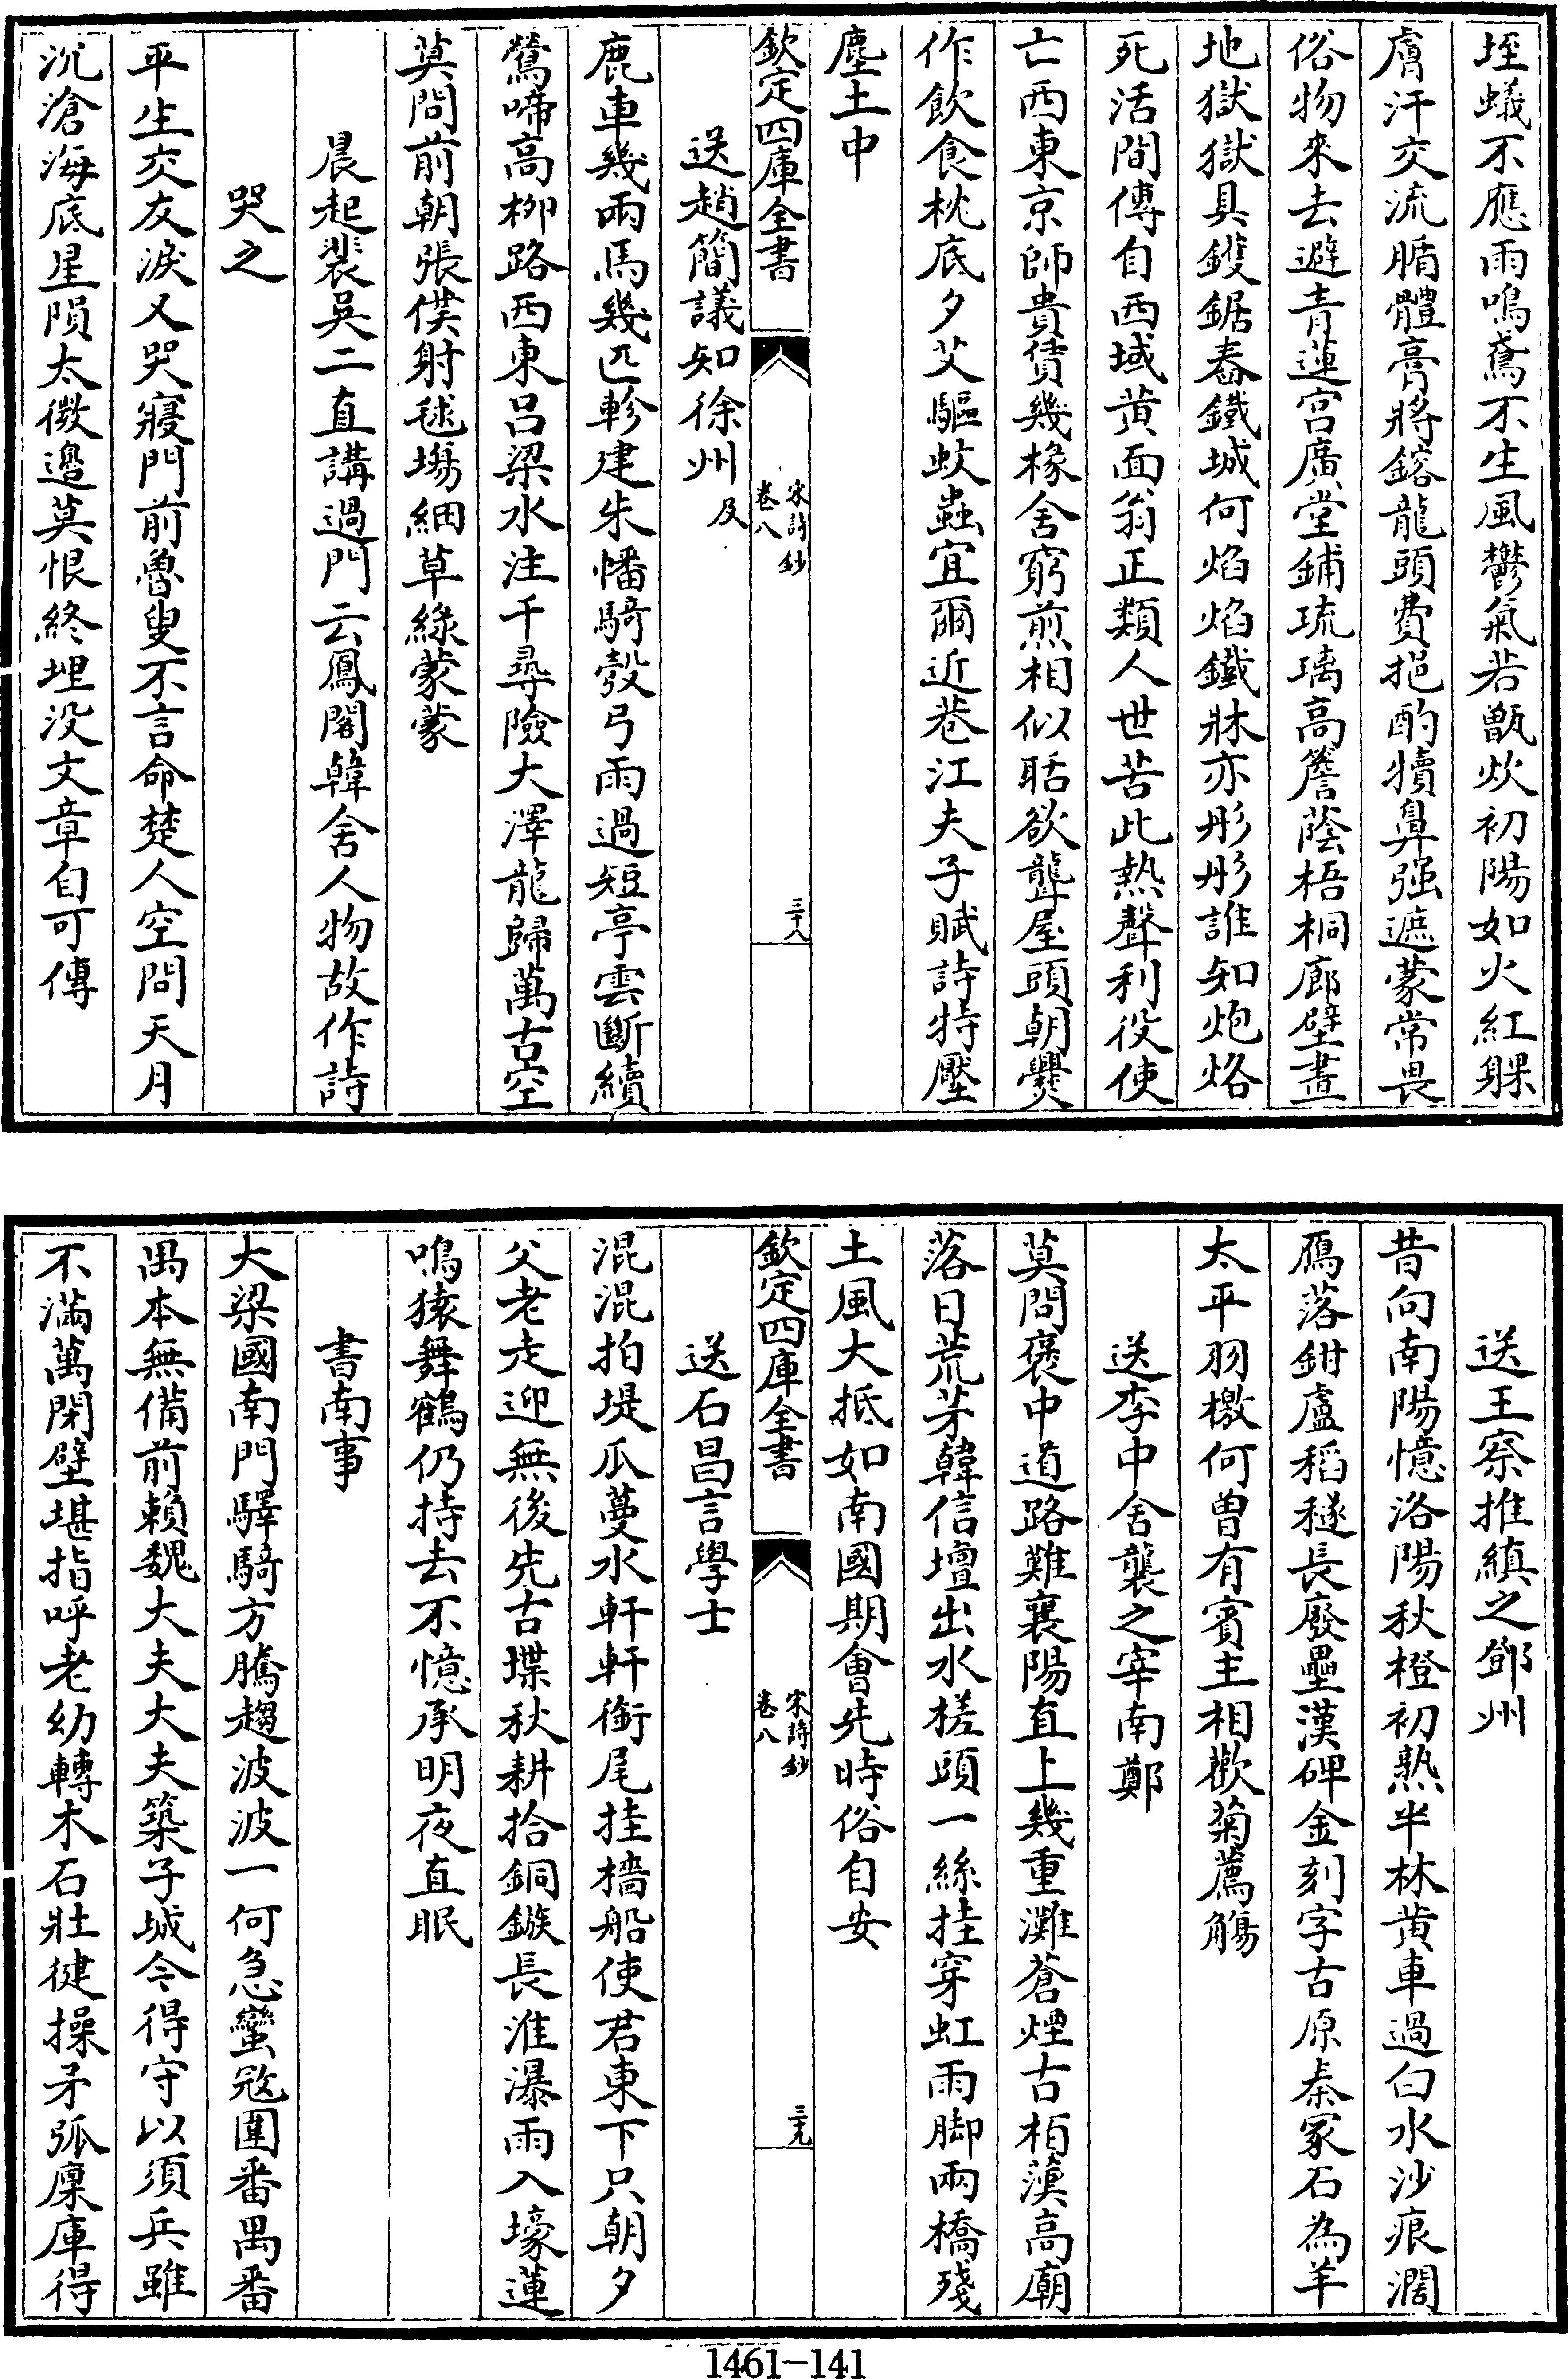 垤蟻不應雨鳴鳶不生風鬱氣若甑炊初陽如火紅躶
膚汗交流腯體膏將鎔龍頭費挹酌犢鼻强遮蒙常畏
俗物來去避青蓮宫廣堂鋪琉璃高簷蔭梧桐廊壁畫
地獄獄具鑊鋸舂鐵城何焰焰鐵牀亦彤彤誰知炮烙
死活間傳自西域黄面翁正類人世苦此熱聲利役使
亡西東京師貴賃幾椽舍窮煎相似聒欲聾屋頭朝爨
作飲食枕底夕艾驅蚊蟲宜爾近巷江夫子賦詩特壓
塵土中
欽定四庫全書
宋詩鈔
卷八
三十八
送趙簡議知徐州及
鹿車幾兩馬幾匹軫建朱幡騎彀弓雨過短亭雲斷續
鶯啼高柳路西東吕梁水注千尋險大澤龍歸萬古空
莫問前朝張僕射毬場細草綠蒙蒙
晨起裴吳二直講過門云鳳閣韓舍人物故作詩
哭之
平生交友淚又哭寢門前魯叟不言命楚人空問天月
沉滄海底星隕太微邉莫恨終埋没文章自可傳
送王察推縝之鄧州
昔向南陽憶洛陽秋橙初熟半林黄車過白水沙痕濶
鴈落鉗盧稻穟長廢壘漢碑金刻字古原秦冢石為羊
太平羽檄何曽有賓主相歡菊薦觴
送李中舍襲之宰南鄭
莫問褒中道路難襄陽直上幾重灘蒼煙古栢漢高廟
落日荒茅韓信壇出水槎頭一絲挂穿虹雨脚兩橋殘
土風大抵如南國期會先時俗自安
欽定四庫全書
宋詩鈔
卷八
三十九
送石昌言學士
混混拍堤瓜蔓水軒軒銜尾挂檣船使君東下只朝夕
父老走迎無後先古堞秋耕拾銅鏃長淮瀑雨入壕蓮
鳴猿舞鶴仍持去不憶承明夜直眠
書南事
大梁國南門驛騎方騰趨波波一何急蠻宼圍番禺番
禺本無備前賴魏大夫大夫築子城今得守以須兵雖
不滿萬閉壁堪指呼老幼轉木石壯健操矛弧廩庫得
1461-141